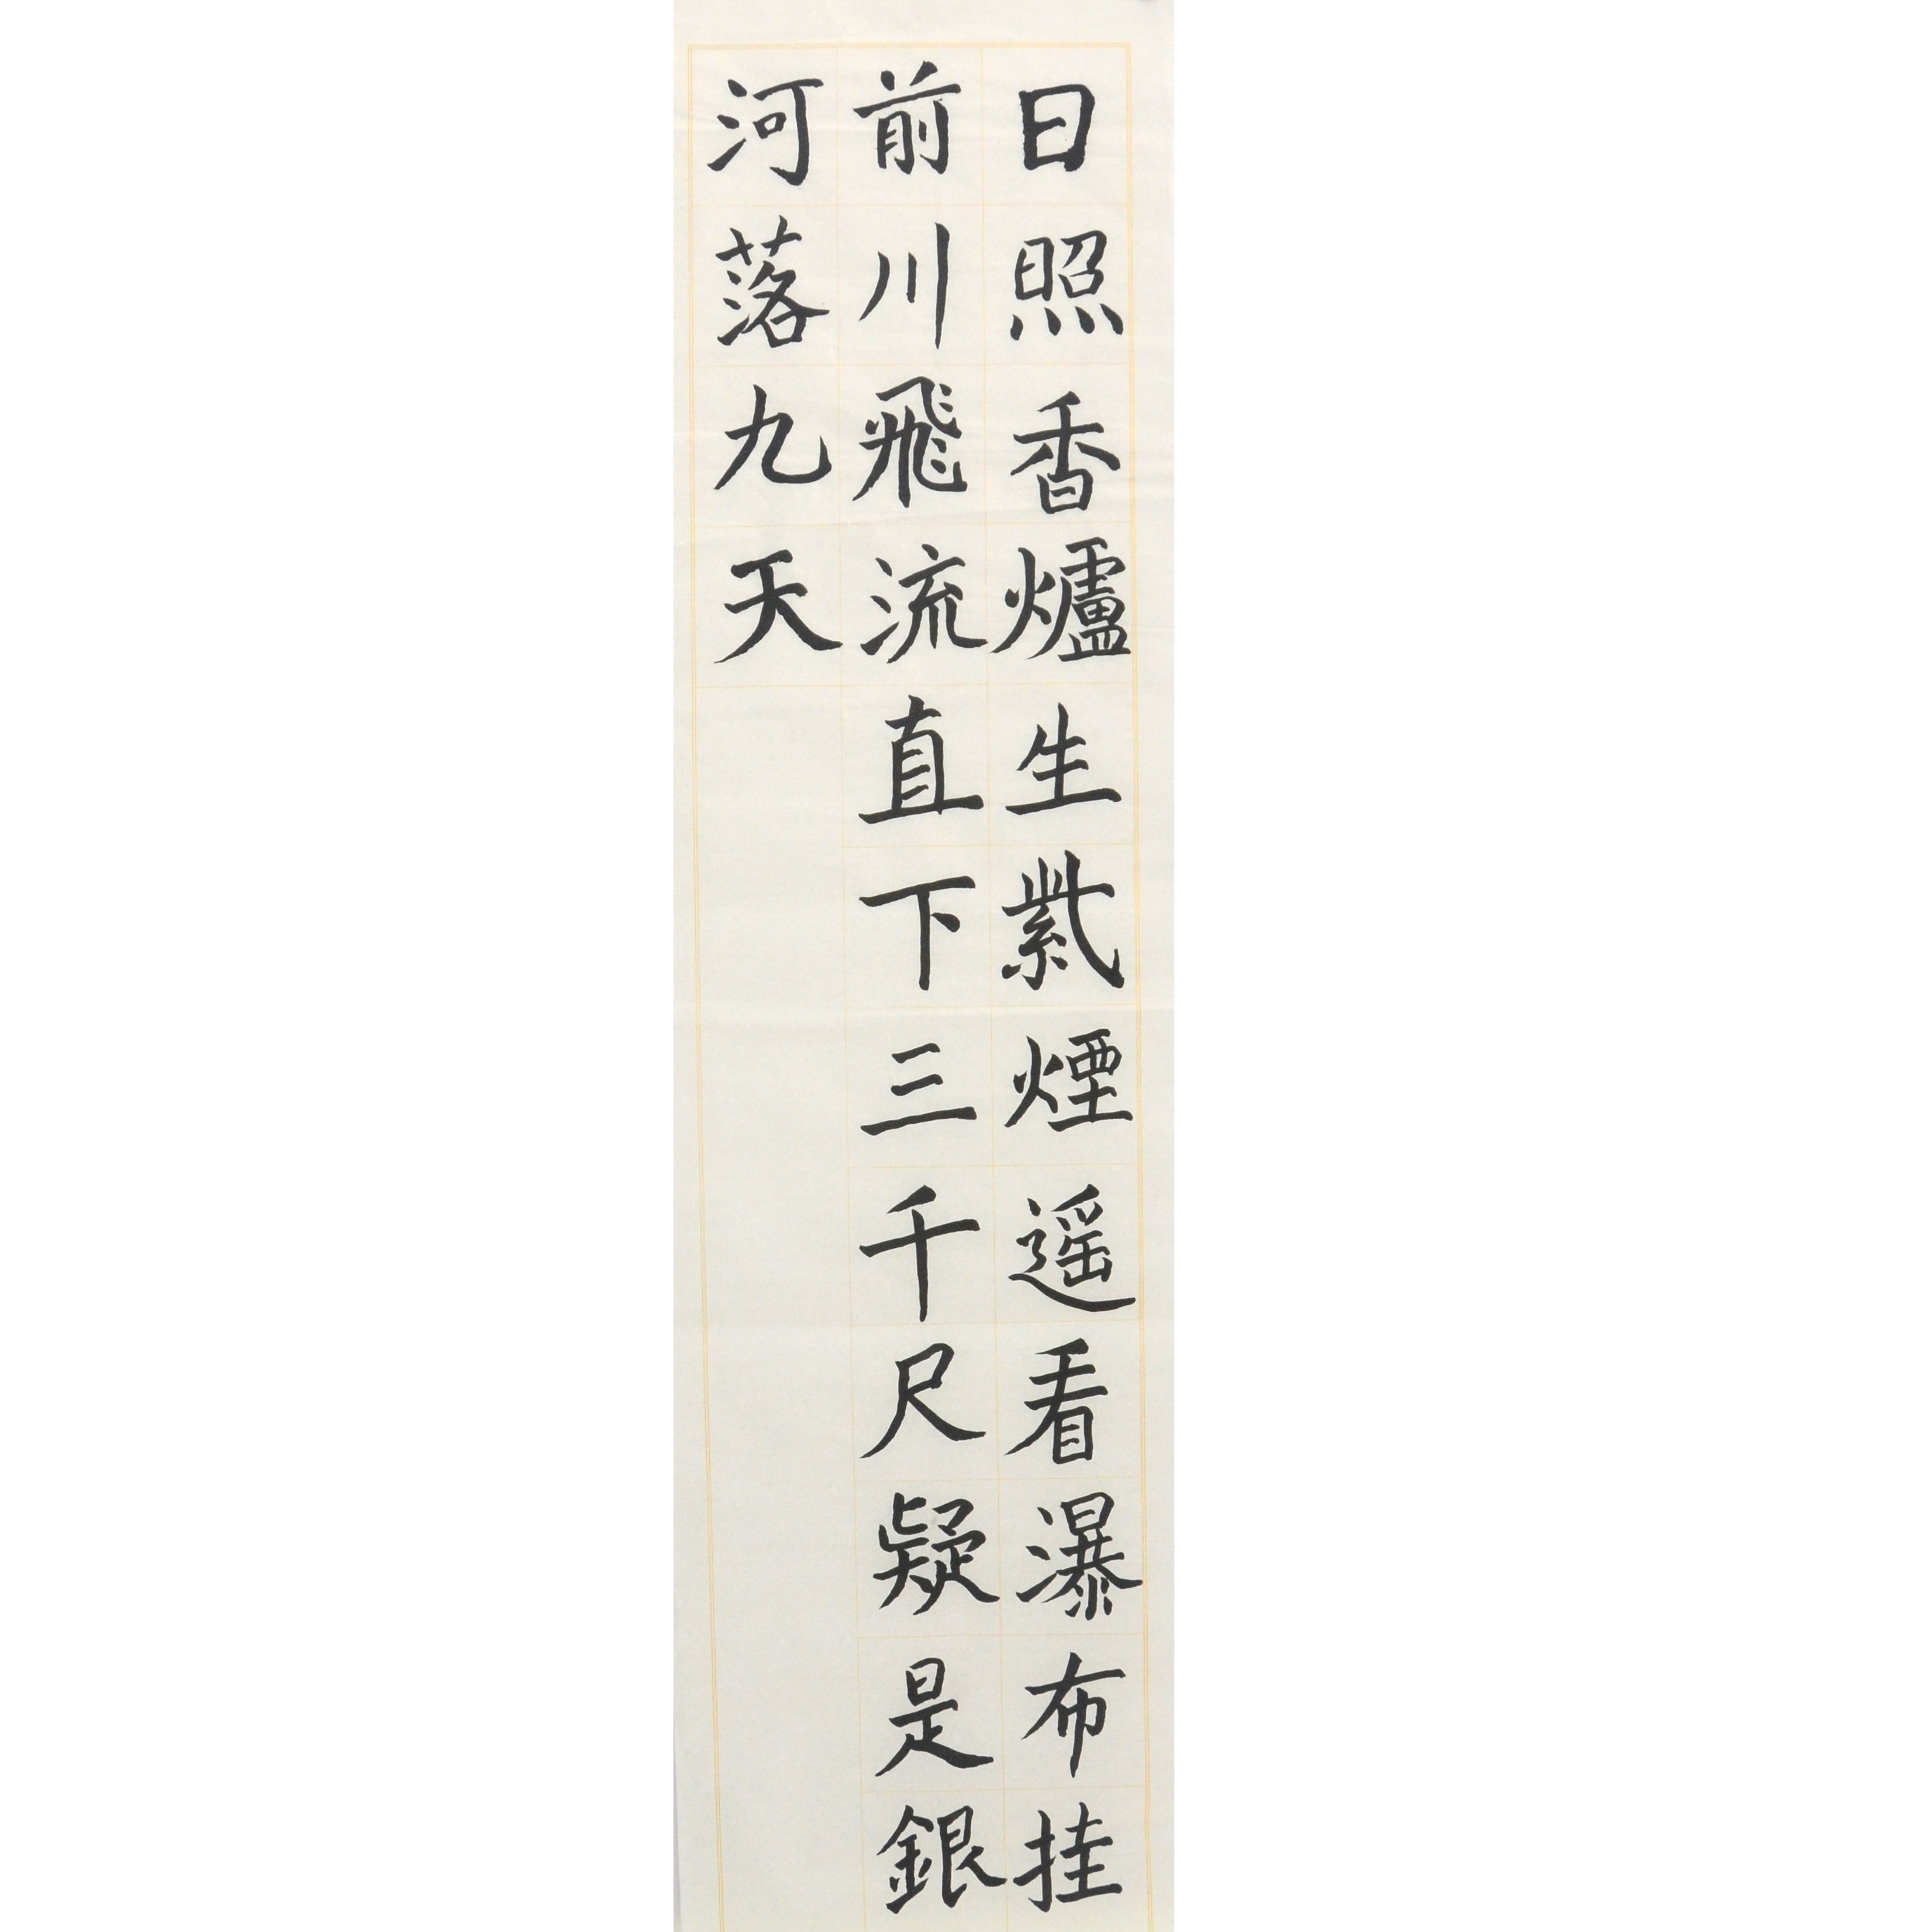 日照香爐生紫煙遥看瀑布挂
前川飛流直下三千尺疑是銀
河落九天